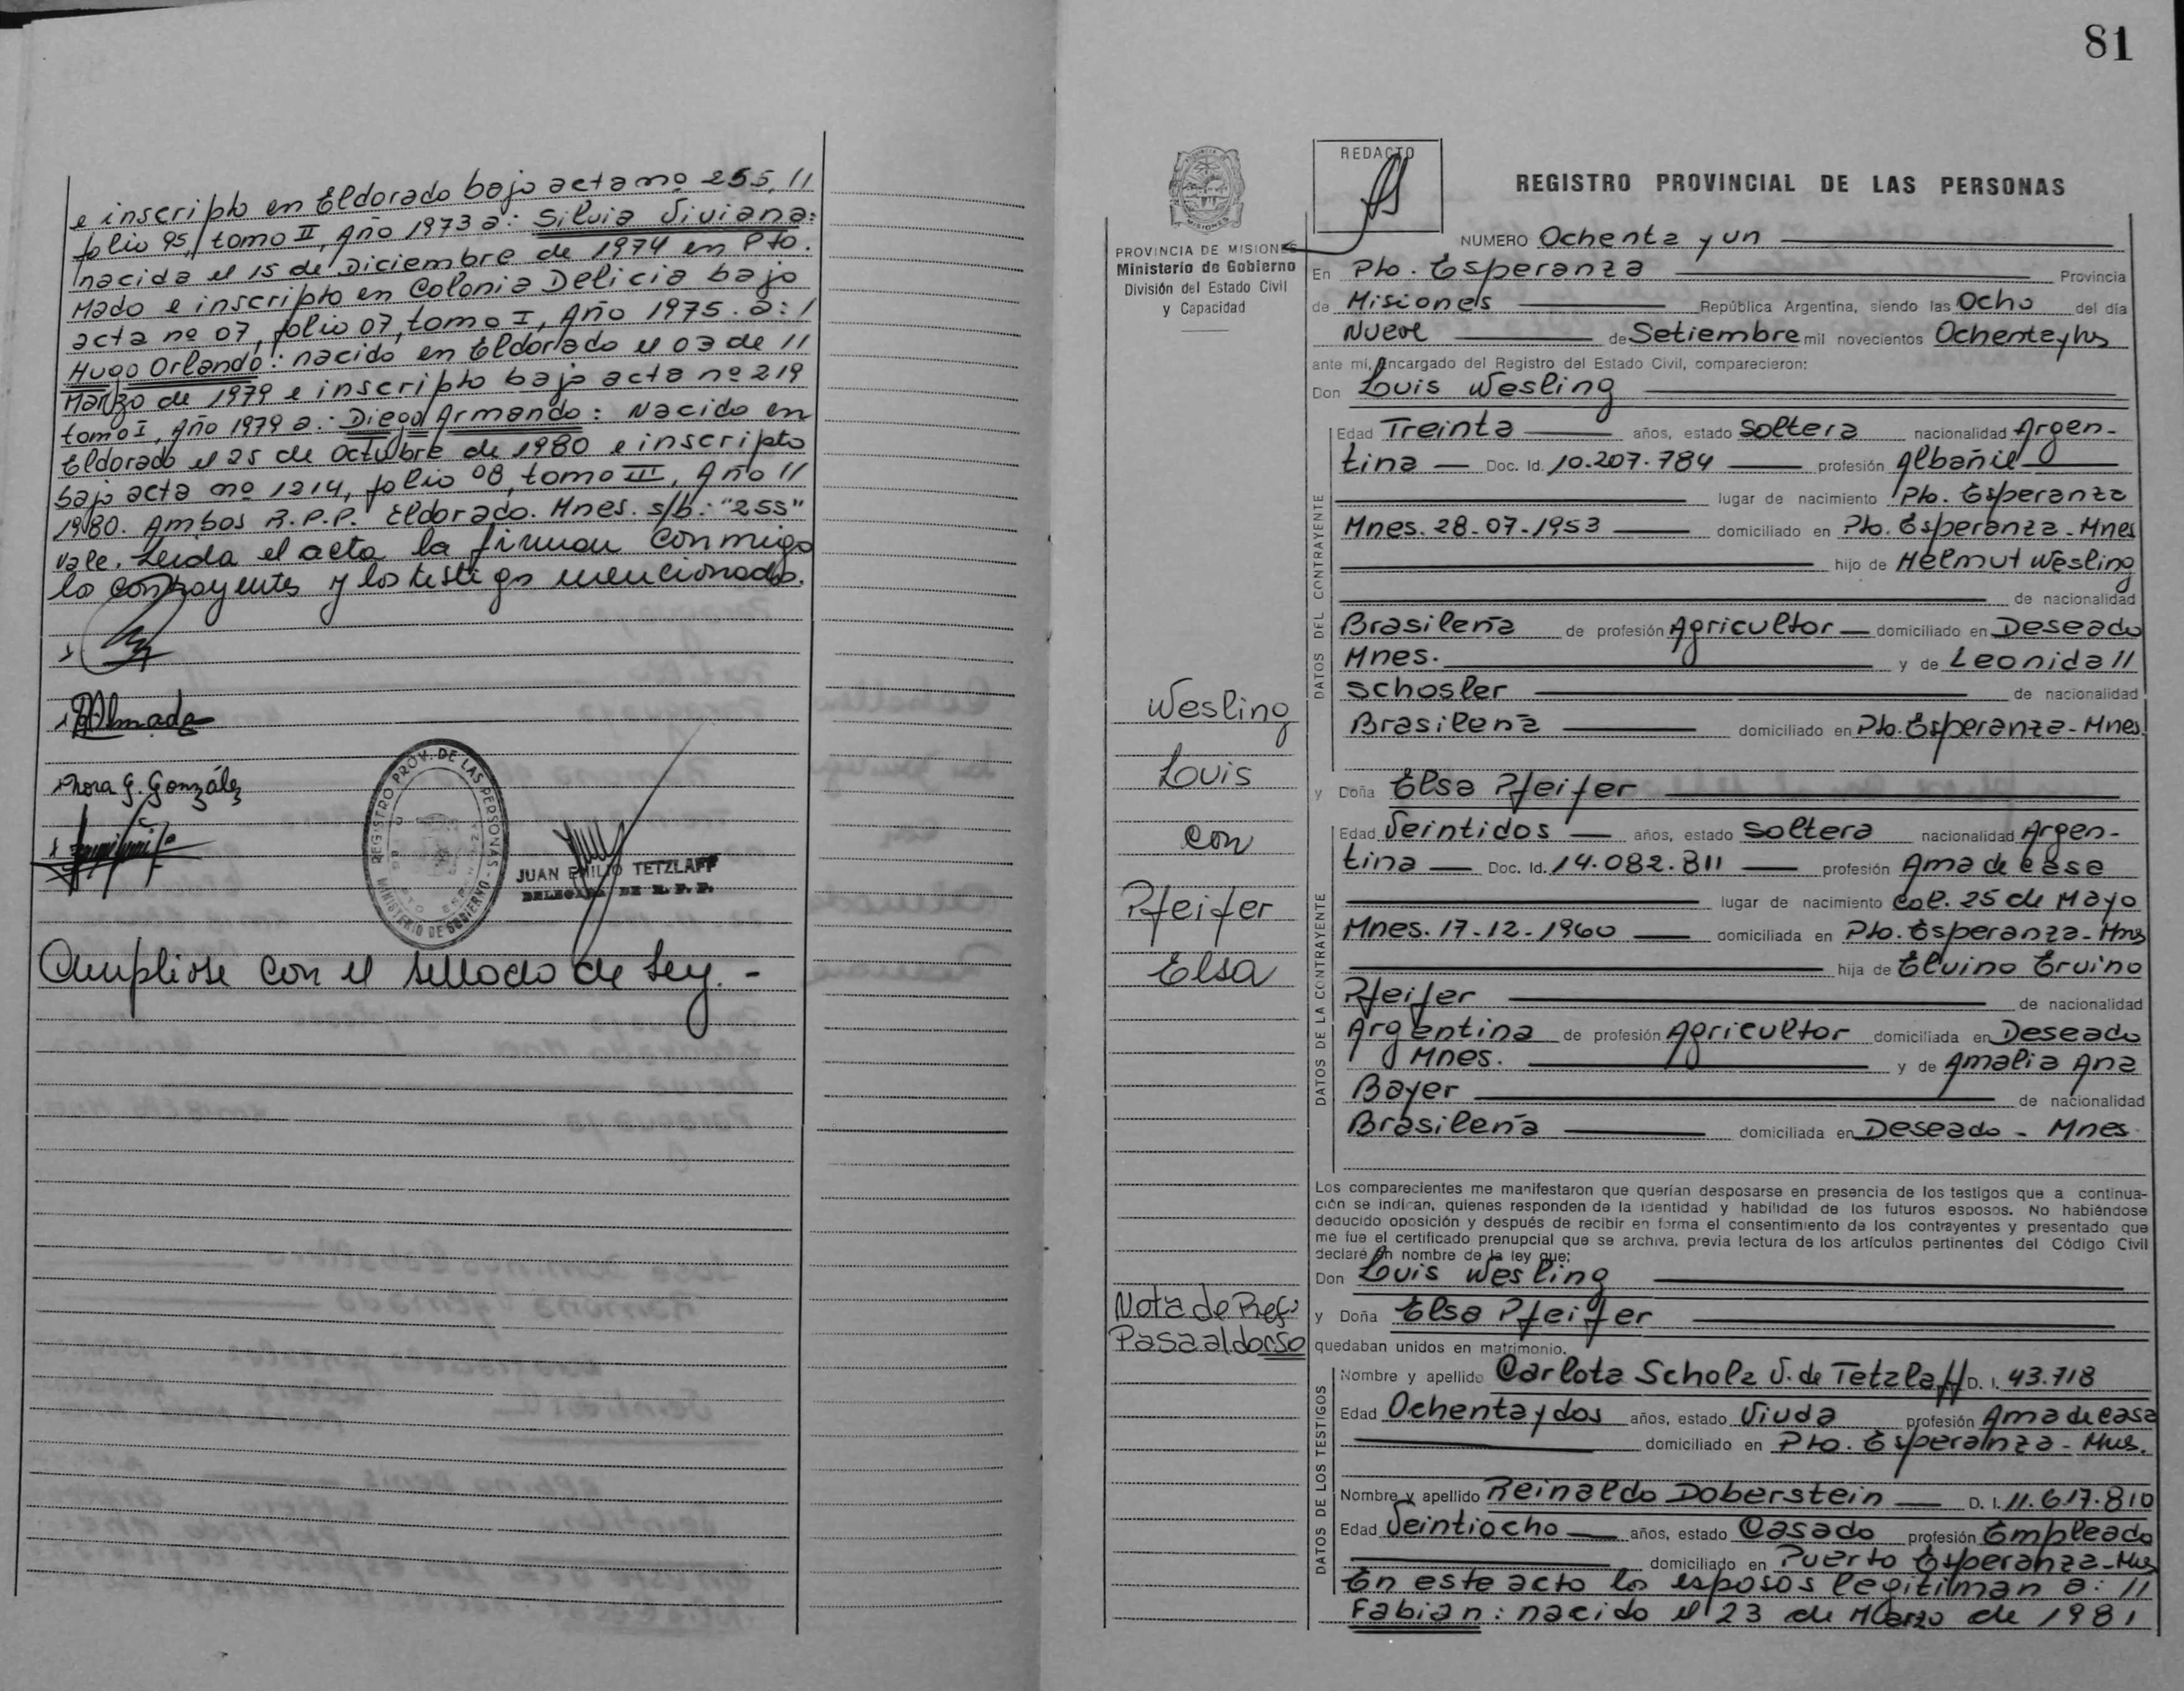 e inscripto en Eldorado bajo acta nº 255, //
folio 95, tomo II, Año 1973 a: Silvia Viviana:
nacida el 15 de Diciembre de 1974 en Pto.
Mado e inscripto en Colonia Delicia bajo
acta nº 07, folio 07, tomo I, Año 1975. a: /
Hugo Orlando: nacido en Eldorado el 03 de //
Marzo de 1979 e inscripto bajo acta nº 219
tomo I, Año 1979 a: Diego Armando: Nacido en
Eldorado el 25 de Octubre de 1980 e inscripto
bajo acta nº 1214, folio 08, tomo III, Año //
1980. Ambos R.P.P. Eldorado. Mnes. s/b: "255"
vale. Leida el acta la firman conmigo
los contrayentes y los testigos mencionados.
Almada
Nora G. González
REGISTRO PROV. DE LAS PERSONAS
MINISTERIO DE GOBIERNO
JUAN EMILIO TETZLAFF
DELEGADO DE R. P. P.
Ampliose con el sellado de Ley. -
81
REDACTO
REGISTRO PROVINCIAL DE LAS PERSONAS
PROVINCIA DE MISIONES
Ministerio de Gobierno
División del Estado Civil
y Capacidad
Wesling
Louis
con
Pfeifer
Elsa
Nota de Ref:
Pasa al dorso
NUMERO Ochenta y un
En Pto. Esperanza Provincia
de Misiones República Argentina, siendo las Ocho del día
Nueve de Setiembre mil novecientos Ochenta y tres
ante mí, Encargado del Registro del Estado Civil, comparecieron:
Don Louis Wesling
DATOS DEL CONTRAYENTE
Edad Treinta años, estado Soltera nacionalidad Argen-
tina Doc. Id. 10.207.784 profesión Albañil
lugar de nacimiento Pto. Esperanza
Mnes. 28-07-1953 domiciliado en Pto. Esperanza-Mnes
hijo de Helmut Wesling
de nacionalidad
Brasileña de profesión Agricultor domiciliado en Deseado
Mnes. y de Leonida //
Schosler de nacionalidad
Brasilena domiciliado en Pto. Esperanza-Mnes.
y Doña Elsa Pfeifer
DATOS DE LA CONTRAYENTE
Edad Veintidos años, estado Soltera nacionalidad Argen-
tina Doc. Id. 14.082.811 profesión Ama de casa
lugar de nacimiento Col. 25 de Mayo
Mnes. 17-12-1960 domiciliada en Pto. Esperanza-Mnes
hija de Elvino Ervino
Pfeifer de nacionalidad
Argentina de profesión Agricultor domiciliada en Deseado
Mnes. y de Amalia Ana
Bayer de nacionalidad
Brasileña domiciliada en Deseado - Mnes
Los comparecientes me manifestaron que querían desposarse en presencia de los testigos que a continua-
ción se indican, quienes responden de la identidad y habilidad de los futuros esposos. No habiéndose
deducido oposición y después de recibir en forma el consentimiento de los contrayentes y presentado que
me fue el certificado prenupcial que se archiva, previa lectura de los artículos pertinentes del Código Civil
declaré en nombre de la ley que:
Don Louis Wesling
y Doña Elsa Pfeifer
quedaban unidos en matrimonio.
DATOS DE LOS TESTIGOS
Nombre y apellido Carlota Scholz V. de Tetzlaff D. I. 43.718
Edad Ochenta y dos años, estado Viuda profesión Ama de casa
domiciliado en Pto. Esperanza-Mnes.
Nombre y apellido Reinaldo Doberstein D. I. 11.617.810
Edad Veintiocho años, estado Casado profesión Empleado
domiciliado en Puerto Esperanza-Mnes
En este acto los esposos legitiman a: //
Fabian: nacido el 23 de Marzo de 1981